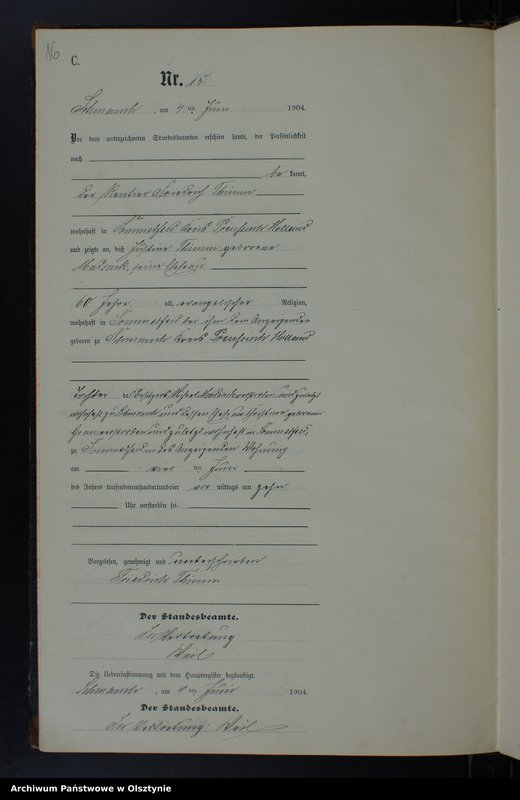 16
C.
Nr. 15.
am 4 ten Juni 1904.
Vor dem unterzeichneten Standesbeamten erschien heute, der Persönlichkeit
nach
be kannt,
der Rentier Friedrich Thimm
wohnhaft in Kreis Preußisch Holland
und zeigte an, daß Justine Thimm geborene
seine Ehefrau
60 Jahre alt, evangelischer Religion,
wohnhaft in bei ihm dem Anzeigenden
geboren zu Kreis Preußisch Holland
Tochter des Besitzers verstorben und zuletzt
wohnhaft zu und dessen Ehefrau geborenen
verstorben und zuletzt wohnhaft in
zu in des Anzeigenden Wohnung
am vier ten Juni
des Jahres tausendneunhundertundvier vor mittags um zehn
Uhr verstorben sei.
Vorgelesen, genehmigt und unterschrieben
Friedrich Thimm
Der Standesbeamte.
In Vertretung
Weil
Die Uebereinstimmung mit dem Hauptregister beglaubigt.
am 4 ten Juni 1904.
Der Standesbeamte.
In Vertretung: Weil
Archiwum Państwowe w Olsztynie